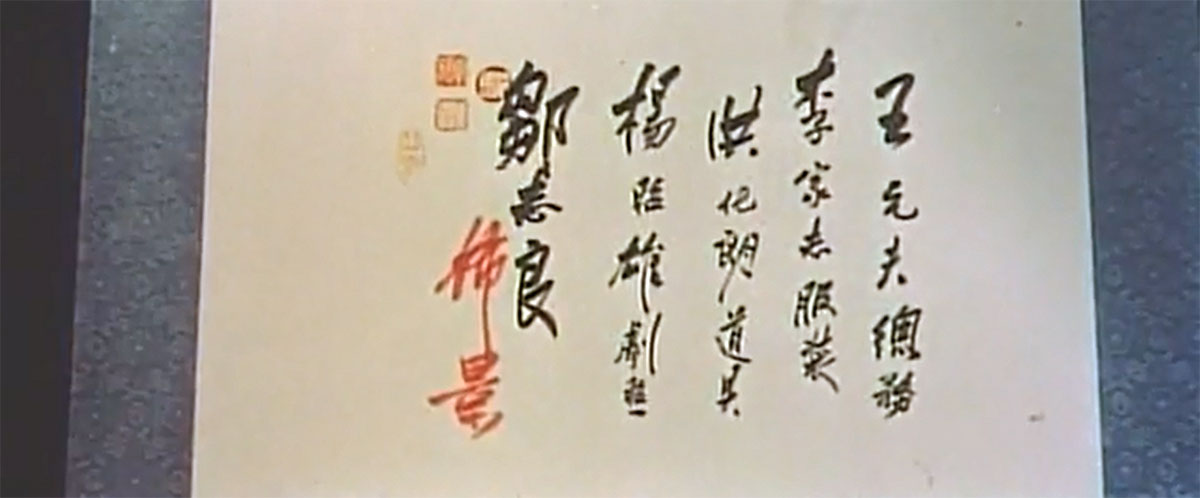 王元夫總務
李家志服裝
洪化朗道具
楊雄劇照
鄒志良
佈景